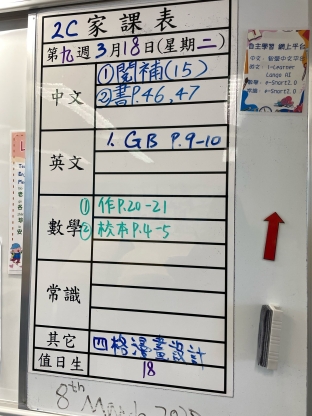 2C 家課表
第九週 3月18日(星期二)
中文
①閱補(15)
②書P.46,47
英文
1. GB P.9-10
數學
① 作P.20-21
② 校本P.4-5
常識
其它
四格漫畫設計
值日生
18
8th March
自主學習 網上平台
i-Learner
e-Smart2.0
e-Smart2.0